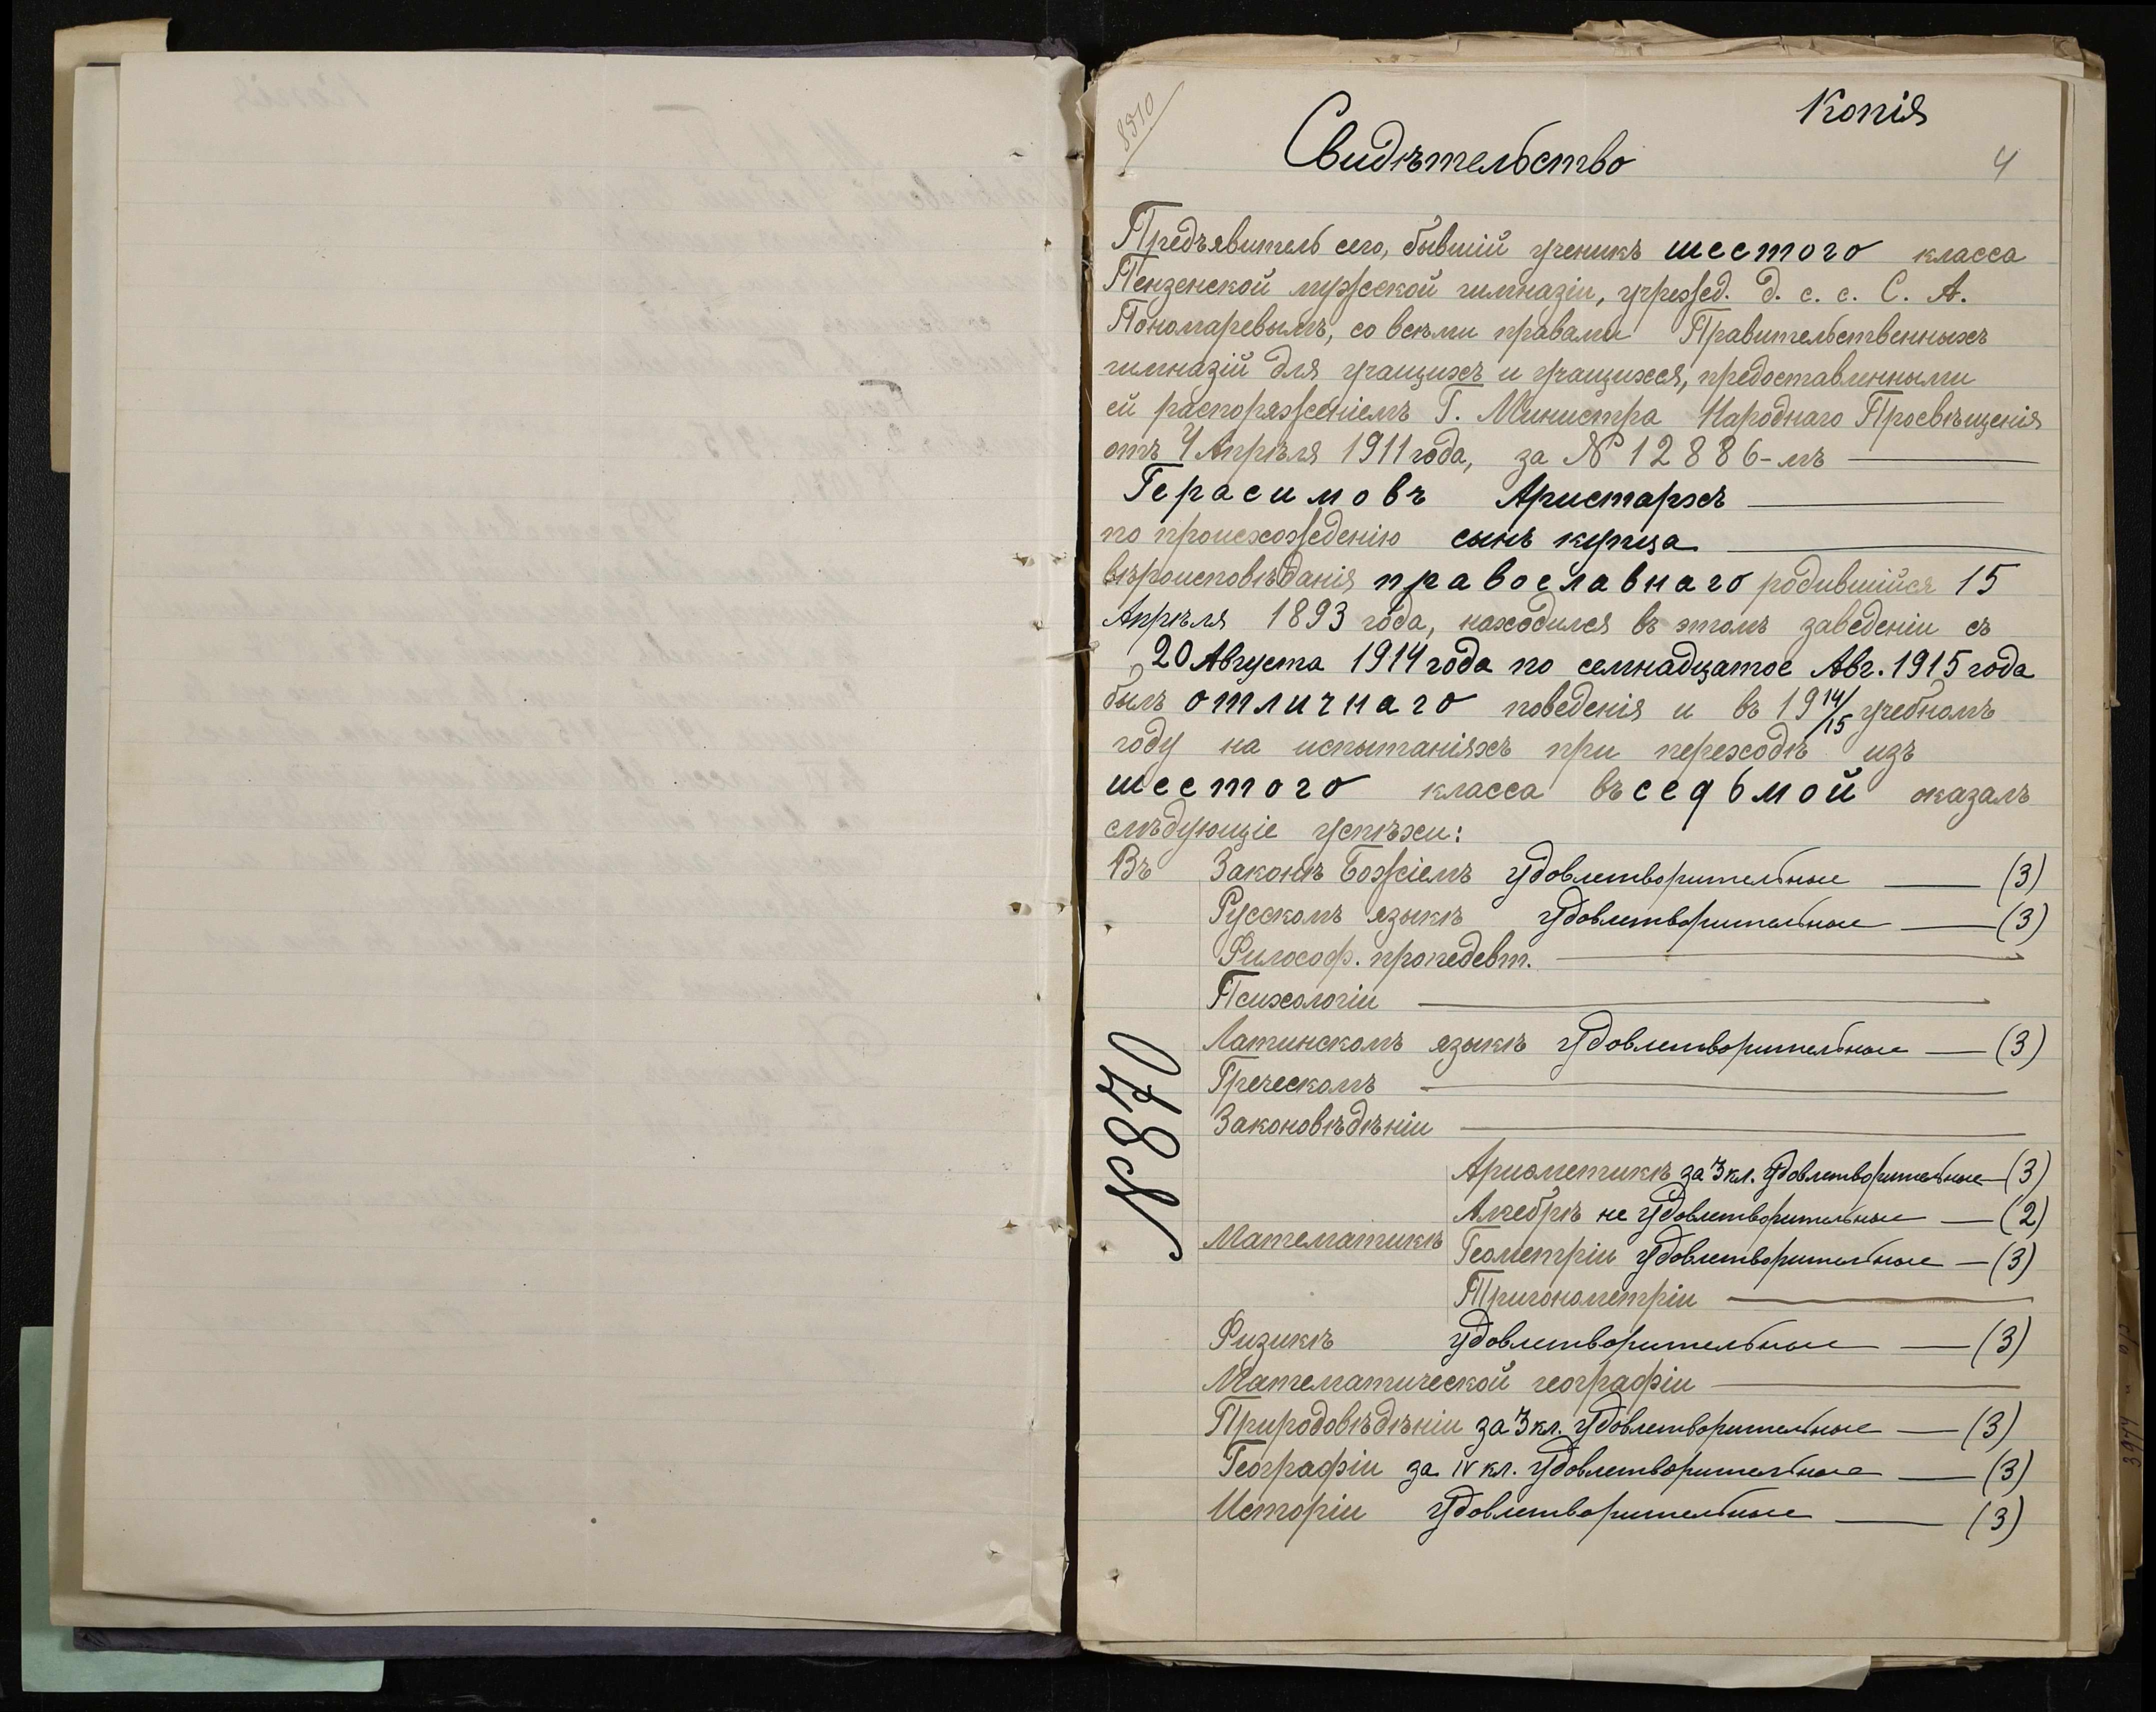 Копія
Свидѣтельство
4
Предъявитель сего, бывшій ученикъ шестого класса
Пензенской мужской гимназіи, учрежд. д. с. с. С. А.
Пономаревымъ, со всѣми правами Правительственныхъ
гимназій для учащихъ и учащихся, предоставленными
ей распоряженіемъ Г. Министра Народнаго Просвѣщенія
отъ 4 Апрѣля 1911 года, за № 12886-мъ
Герасимовъ Аристархъ
по происхожденію сынъ купца
вѣроисповѣданія православнаго родившійся 15
Апрѣля 1893 года, находился въ этомъ заведеніи съ
20 Августа 1914 года по семнадцатое Авг. 1915 года
былъ отличнаго поведенія и въ 1914/15 учебномъ
году на испытаніяхъ при переходѣ изъ
шестого класса въ седьмой оказалъ
слѣдующіе успѣхи:
Въ Законѣ Божіемъ удовлетворительные (3)
Русскомъ языкѣ удовлетворительные (3)
Философ. пропедевт.
Психологіи
Латинскомъ языкѣ удовлетворительные (3)
Греческомъ
Законовѣдѣніи
№ 870
Математикѣ
Ариѳметикѣ за 3 кл. удовлетворительные (3)
Алгебрѣ не удовлетворительные (2)
Геометріи удовлетворительные (3)
Тригонометріи
Физикѣ удовлетворительные (3)
Математической географіи
Природовѣдѣніи за 3 кл. удовлетворительные (3)
Географіи за IV кл. удовлетворительные (3)
Исторіи удовлетворительные (3)